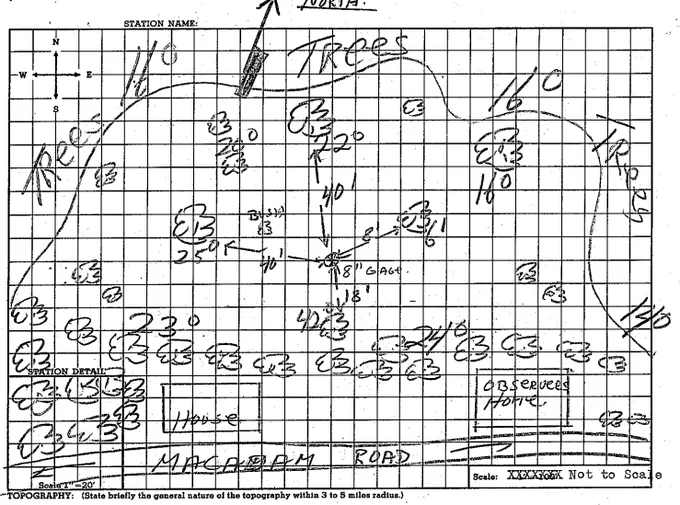 NORTH.
STATION NAME:
Trees
N
W E
S
16°
16°
Trees
Trees
20°
22°
16°
40'
BUSH
8'
6'
25°
40'
8" GAGE
18'
42
23°
24°
140
STATION DETAIL
House
OBSERVERS
Home
MACADAM ROAD
Scale 1"=20'
Scale: XXXXXXX Not to Scale
TOPOGRAPHY: (State briefly the general nature of the topography within 3 to 5 miles radius.)